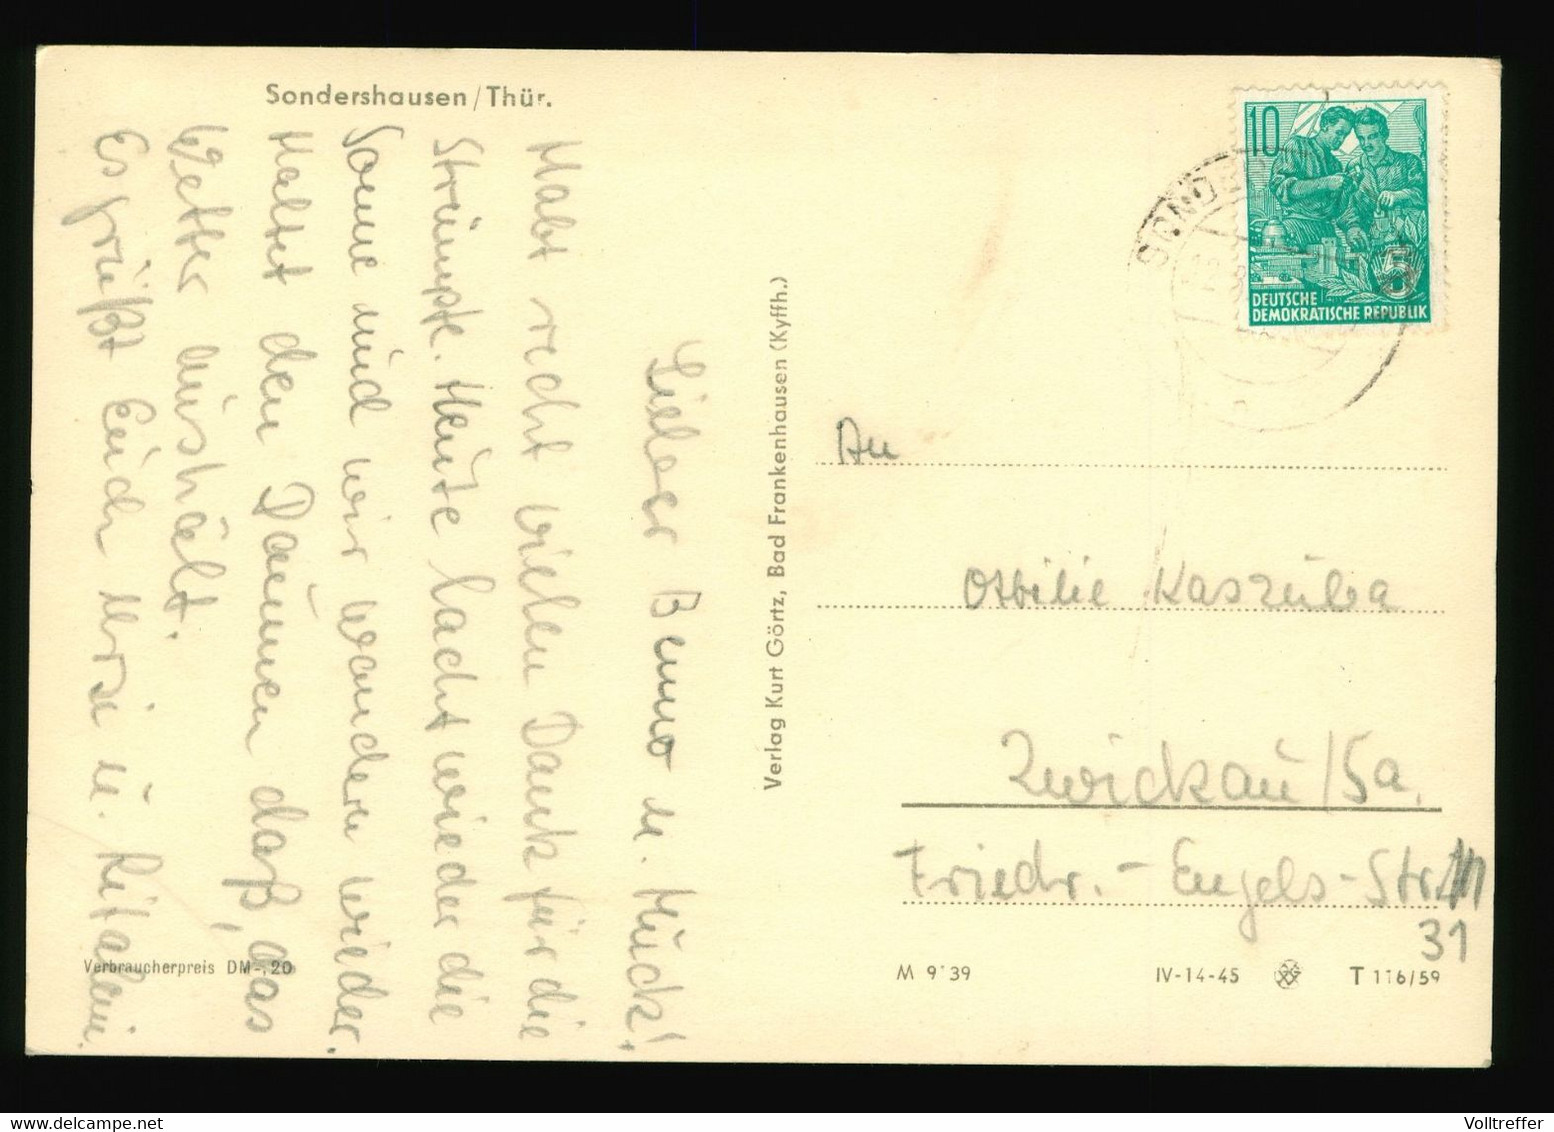 Sondershausen/Thür.
Lieber Benno u. Muck!
Habt recht vielen Dank für die
Strümpfe. Heute lacht wieder die
Sonne und wir wandern wieder.
Haltet den Daumen daß, das
Wetter aushält.
Es grüßt Euch Ursi u. Ritalein.
Verbraucherpreis DM -,20
Verlag Kurt Görtz, Bad Frankenhausen (Kyffh.)
10
5
DEUTSCHE
DEMOKRATISCHE REPUBLIK
An
Ottilie Kaszuba
Zwickau/Sa.
Friedr.-Engels-Str.
31
M 9*39
IV-14-45
T 116/59
Volltreffer